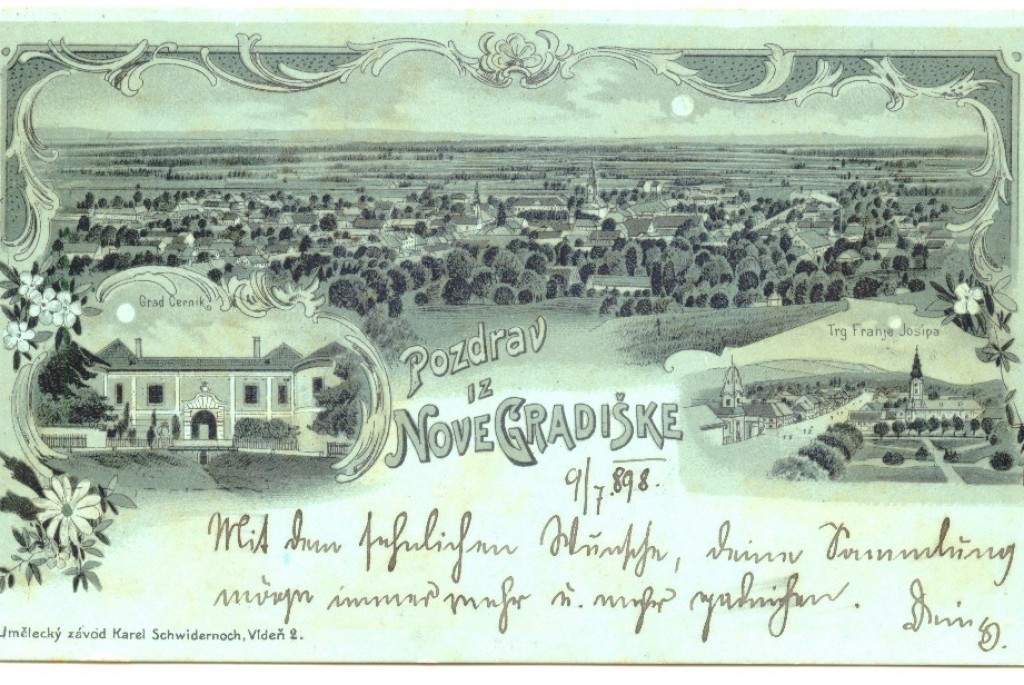 Grad Cernik
Trg Franje Josipa
Pozdrav
iz
Nove Gradiške
9/7. 898.
Mit dem sehnlichen Wunsche, deine Sammlung
möge immer mehr u. mehr gedeihen.
Dein
Umělecký závod Karel Schwidernoch, Vídeň 2.